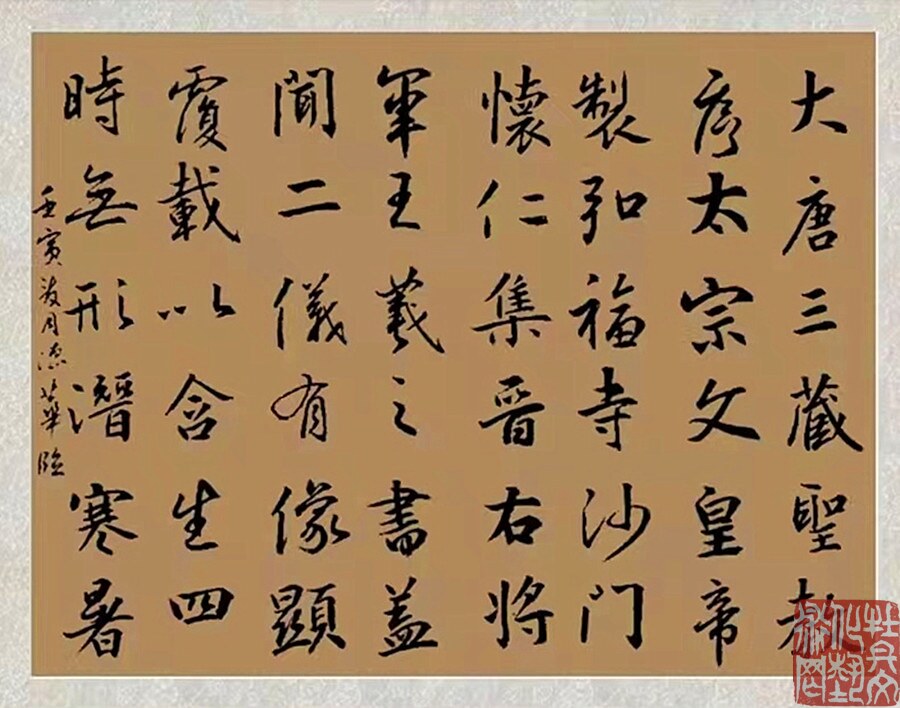 大唐三藏聖教
序太宗文皇帝
製弘福寺沙門
懷仁集晉右將
軍王羲之書蓋
聞二儀有像顯
覆載以含生四
時無形潛寒暑
壬寅月華臨